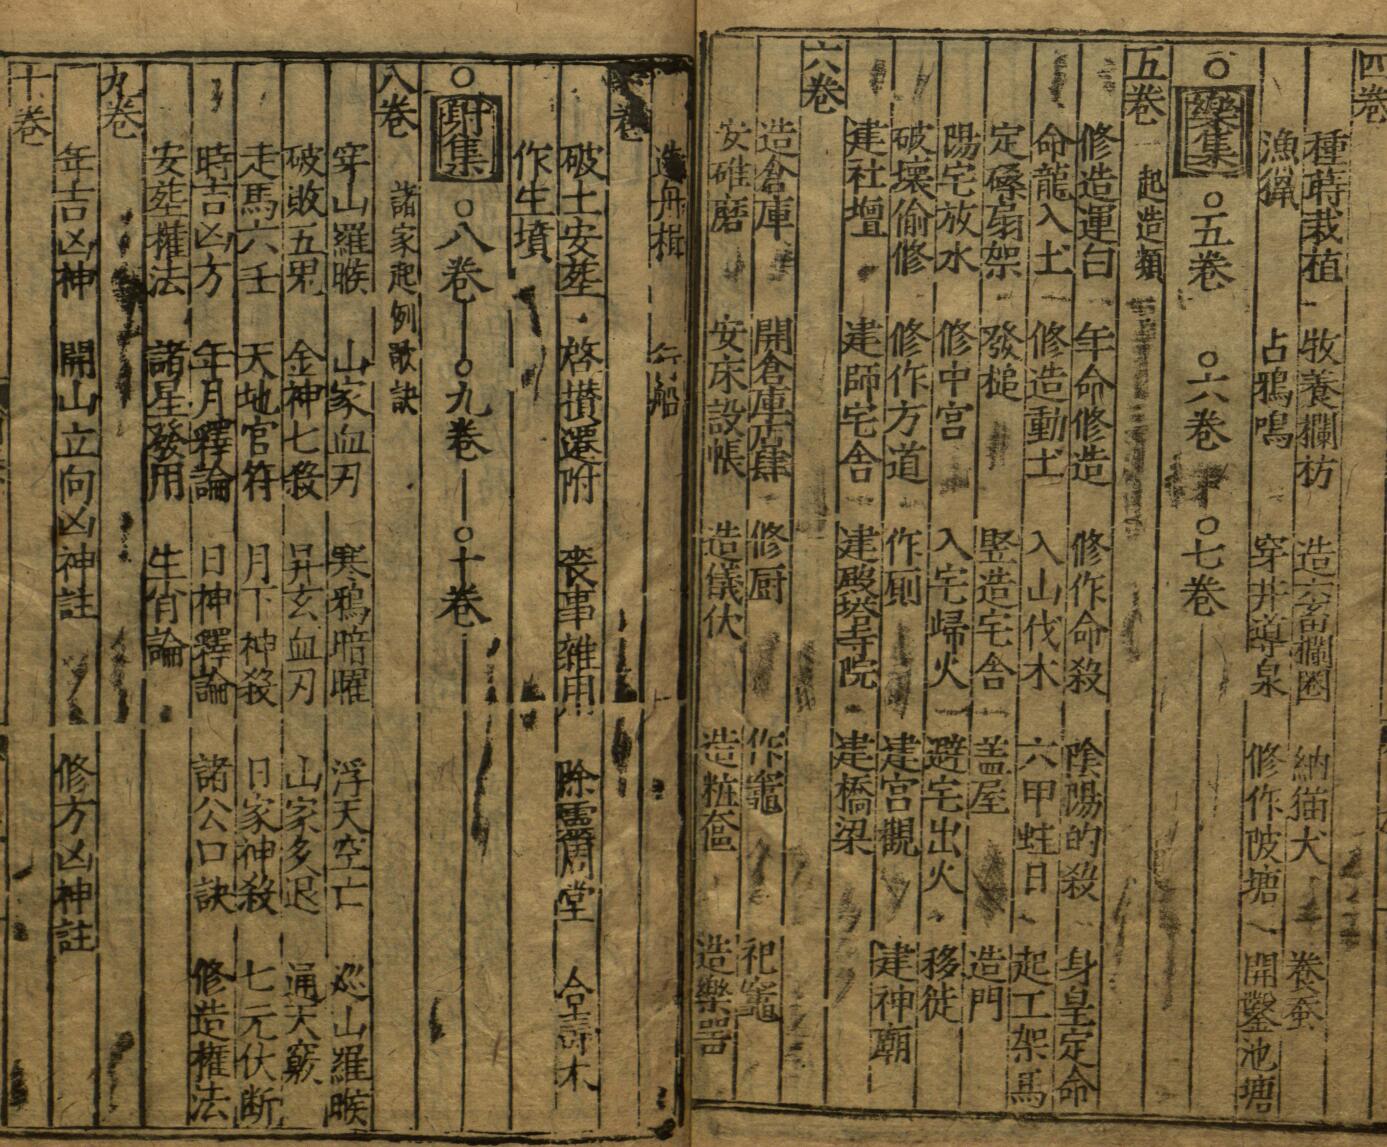 四卷
種蒔栽植 牧養欄枋 造六畜欄圈 納猫犬 養蚕
漁獵 占鴉鳴 穿井導泉 修作陂塘 開鑿池塘
○樂集 ○五卷 ○六卷 ○七卷
五卷 起造類
修造運白 年命修造 修作命殺 陰陽的殺 身皇定命
命龍入土 修造動土 入山伐木 六甲蛙日 起工架馬
定磉扇架 發槌 竪造宅舍 盖屋 造門
陽宅放水 修中宮 入宅歸火 避宅出火 移徙
破壞偷修 修作方道 作厠 建宮觀 建神廟
建社壇 建師宅舍 建殿塔寺院 建橋梁
六卷
造倉庫 開倉庫店肆 修厨 作竈 祀竈
安碓磨 安床設帳 造儀伏 造粧奩 造樂噐
造舟楫 船
卷
破土安葬 啓攢還附 喪事雜用 除靈周堂 合壽木
作生墳
○射集 ○八卷 ○九卷 ○十卷
八卷 諸家起例歌訣
穿山羅睺 山家血刃 寒鴉暗曜 浮天空亡 廵山羅睺
破敗五鬼 金神七殺 昇玄血刃 山家多迟 通天竅
走馬六壬 天地官符 月下神殺 日家神殺 七元伏断
時吉凶方 年月釋論 日神釋論 諸公口訣 修造權法
安葬權法 諸星發用 生肖論
九卷
年吉凶神 開山立向凶神註 修方凶神註
十卷